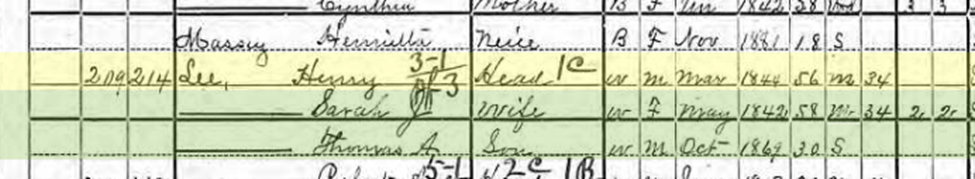 Cynthia Mother B F Jan 1842 58 Wd 3 3
Massey Henrietta Neice B F Nov 1881 18 S
209 214 Lee, Henry 3-1 Head 1C W M Mar 1844 56 M 34
Sarah J 3 Wife W F May 1842 58 M 34 2 2
Thomas A Son W M Oct 1869 30 S
5-1 2C 1B